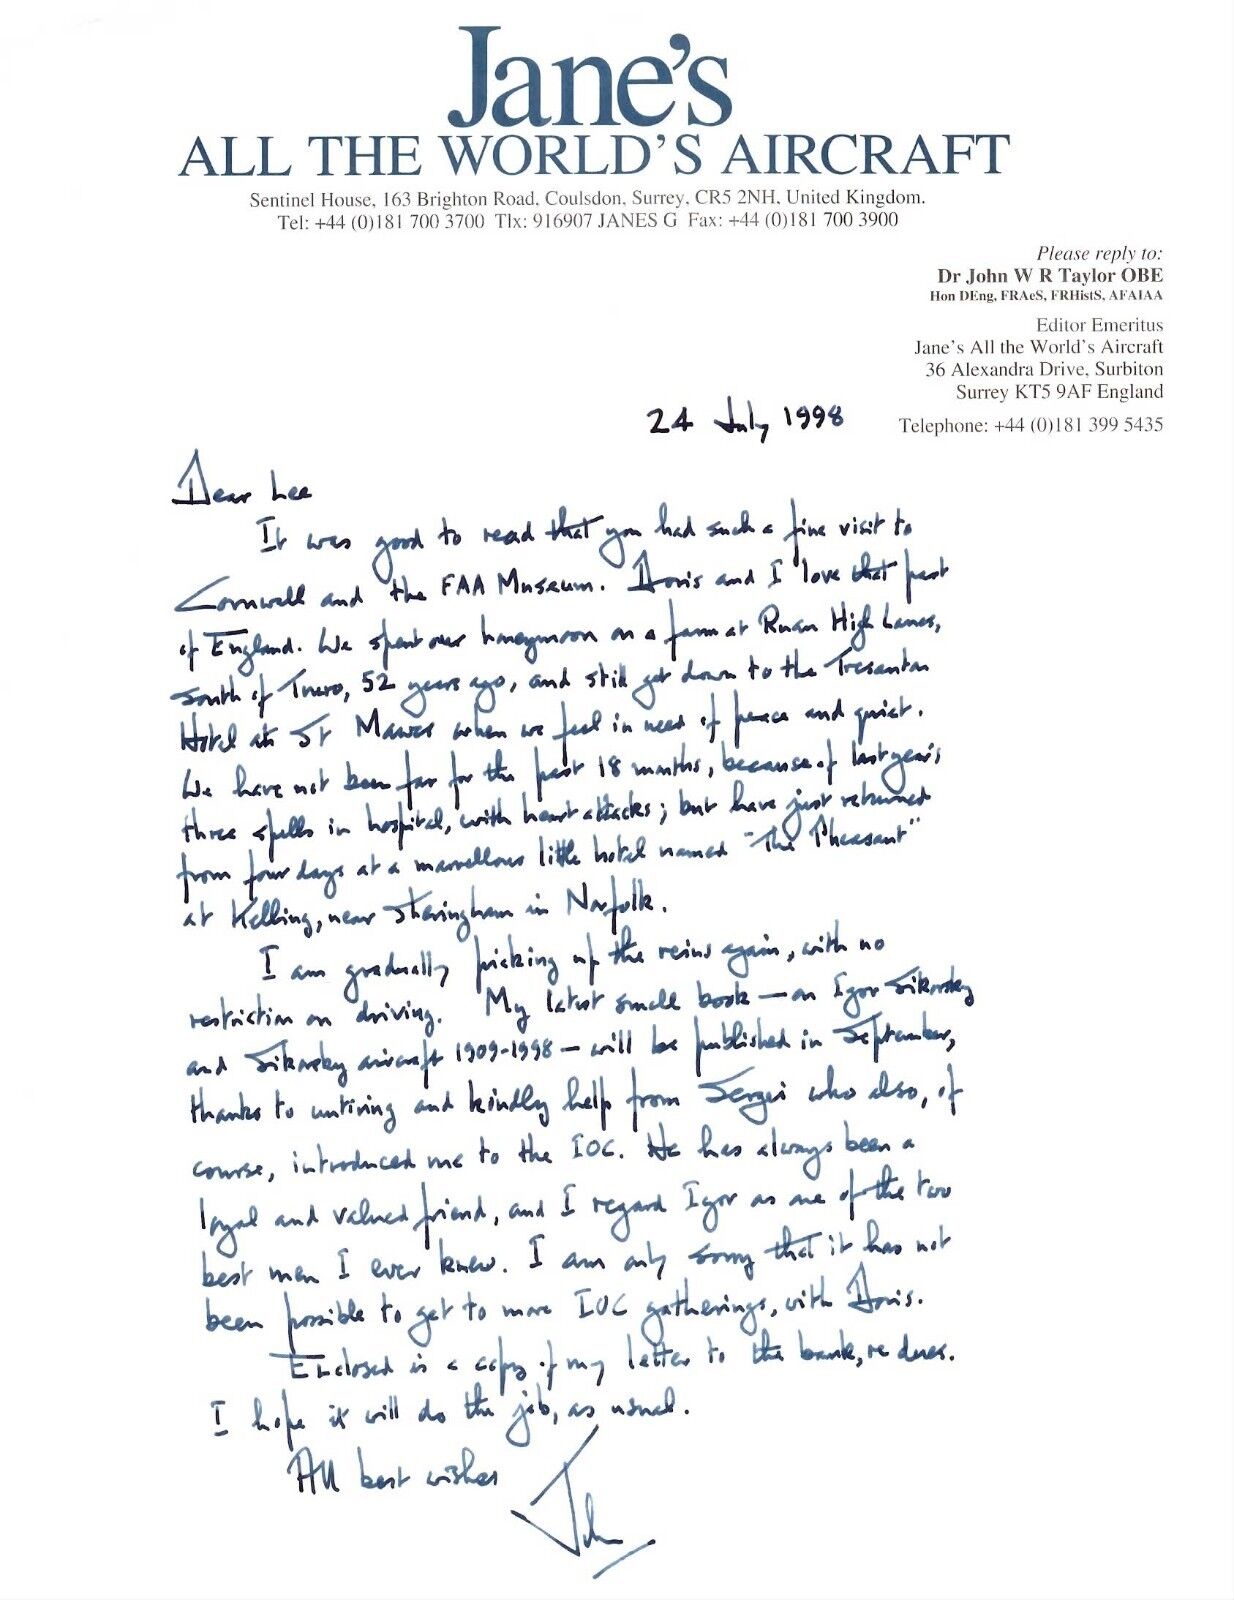 Jane's
ALL THE WORLD'S AIRCRAFT
Sentinel House, 163 Brighton Road, Coulsdon, Surrey, CR5 2NH, United Kingdom.
Tel: +44 (0)181 700 3700 Tlx: 916907 JANES G Fax: +44 (0)181 700 3900
Please reply to:
Dr John W R Taylor OBE
Hon DEng, FRAeS, FRHistS, AFAIAA
Editor Emeritus
Jane's All the World's Aircraft
36 Alexandra Drive, Surbiton
Surrey KT5 9AF England
Telephone: +44 (0)181 399 5435
24 July 1998
Dear Lee
It was good to read that you had such a fine visit to
Cornwall and the FAA Museum. Doris and I love that part
of England. We spent our honeymoon on a farm at Ruan High Lanes,
south of Truro, 52 years ago, and still get down to the Tresanton
Hotel at St Mawes when we feel in need of peace and quiet.
We have not been far for the past 18 months, because of last year's
three spells in hospital, with heart attacks; but have just returned
from four days at a marvellous little hotel named "The Pheasant"
at Kelling, near Sheringham in Norfolk.
I am gradually picking up the reins again, with no
restriction on driving. My latest small book — on Igor Sikorsky
and Sikorsky aircraft 1909-1998 — will be published in September,
thanks to untiring and kindly help from Sergei who also, of
course, introduced me to the IOC. He has always been a
loyal and valued friend, and I regard Igor as one of the two
best men I ever knew. I am only sorry that it has not
been possible to get to more IOC gatherings, with Doris.
Enclosed is a copy of my letter to the bank, re dues.
I hope it will do the job, as usual.
All best wishes
John